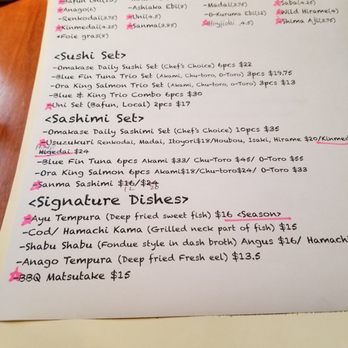 -Anago(6) -Ashiaka Ebi(8)
-Renkodai(3.75) Uni(4.5) -O-Kuruma Ebi Wild Hirame(4)
Kinmedai(4.25) Sanma(3.75) Shima Aji(3.75)
-Foie gras(8)
<Sushi Set>
-Omakase Daily Sushi Set (Chef's Choice) 6pcs $22
-Blue Fin Tuna Trio Set (Akami, Chu-toro, O-toro) 3pcs $19.75
-Ora King Salmon Trio Set (Akami, Chu-toro, O-toro) 3pcs $13
-Blue & King Trio Combo 6pcs $30
Uni Set (Bafun, Local) 2pc $17
<Sashimi Set>
-Omakase Daily Sashimi Set (Chef's Choice) 10pcs $35
Usuzukuri Renkodai, Madai, Itoyori$18/Houbou, Isaki, Hirame $20/Kinme
Higedai $24
-Blue Fin Tuna 6pcs Akami $33/ Chu-Toro $45/ O-Toro $55
-Ora King Salmon 6pcs Akami$18/Chu-toro$24/ O-Toro $33
Sanma Sashimi $16/$24
12
<Signature Dishes>
Ayu Tempura (Deep fried sweet fish) $16 <Season>
-Cod/ Hamachi Kama (Grilled neck part of fish) $15
-Shabu Shabu (Fondue style in dash broth) Angus $16/ Hamachi
-Anago Tempura (Deep fried Fresh eel) $13.5
-BBQ Matsutake $15